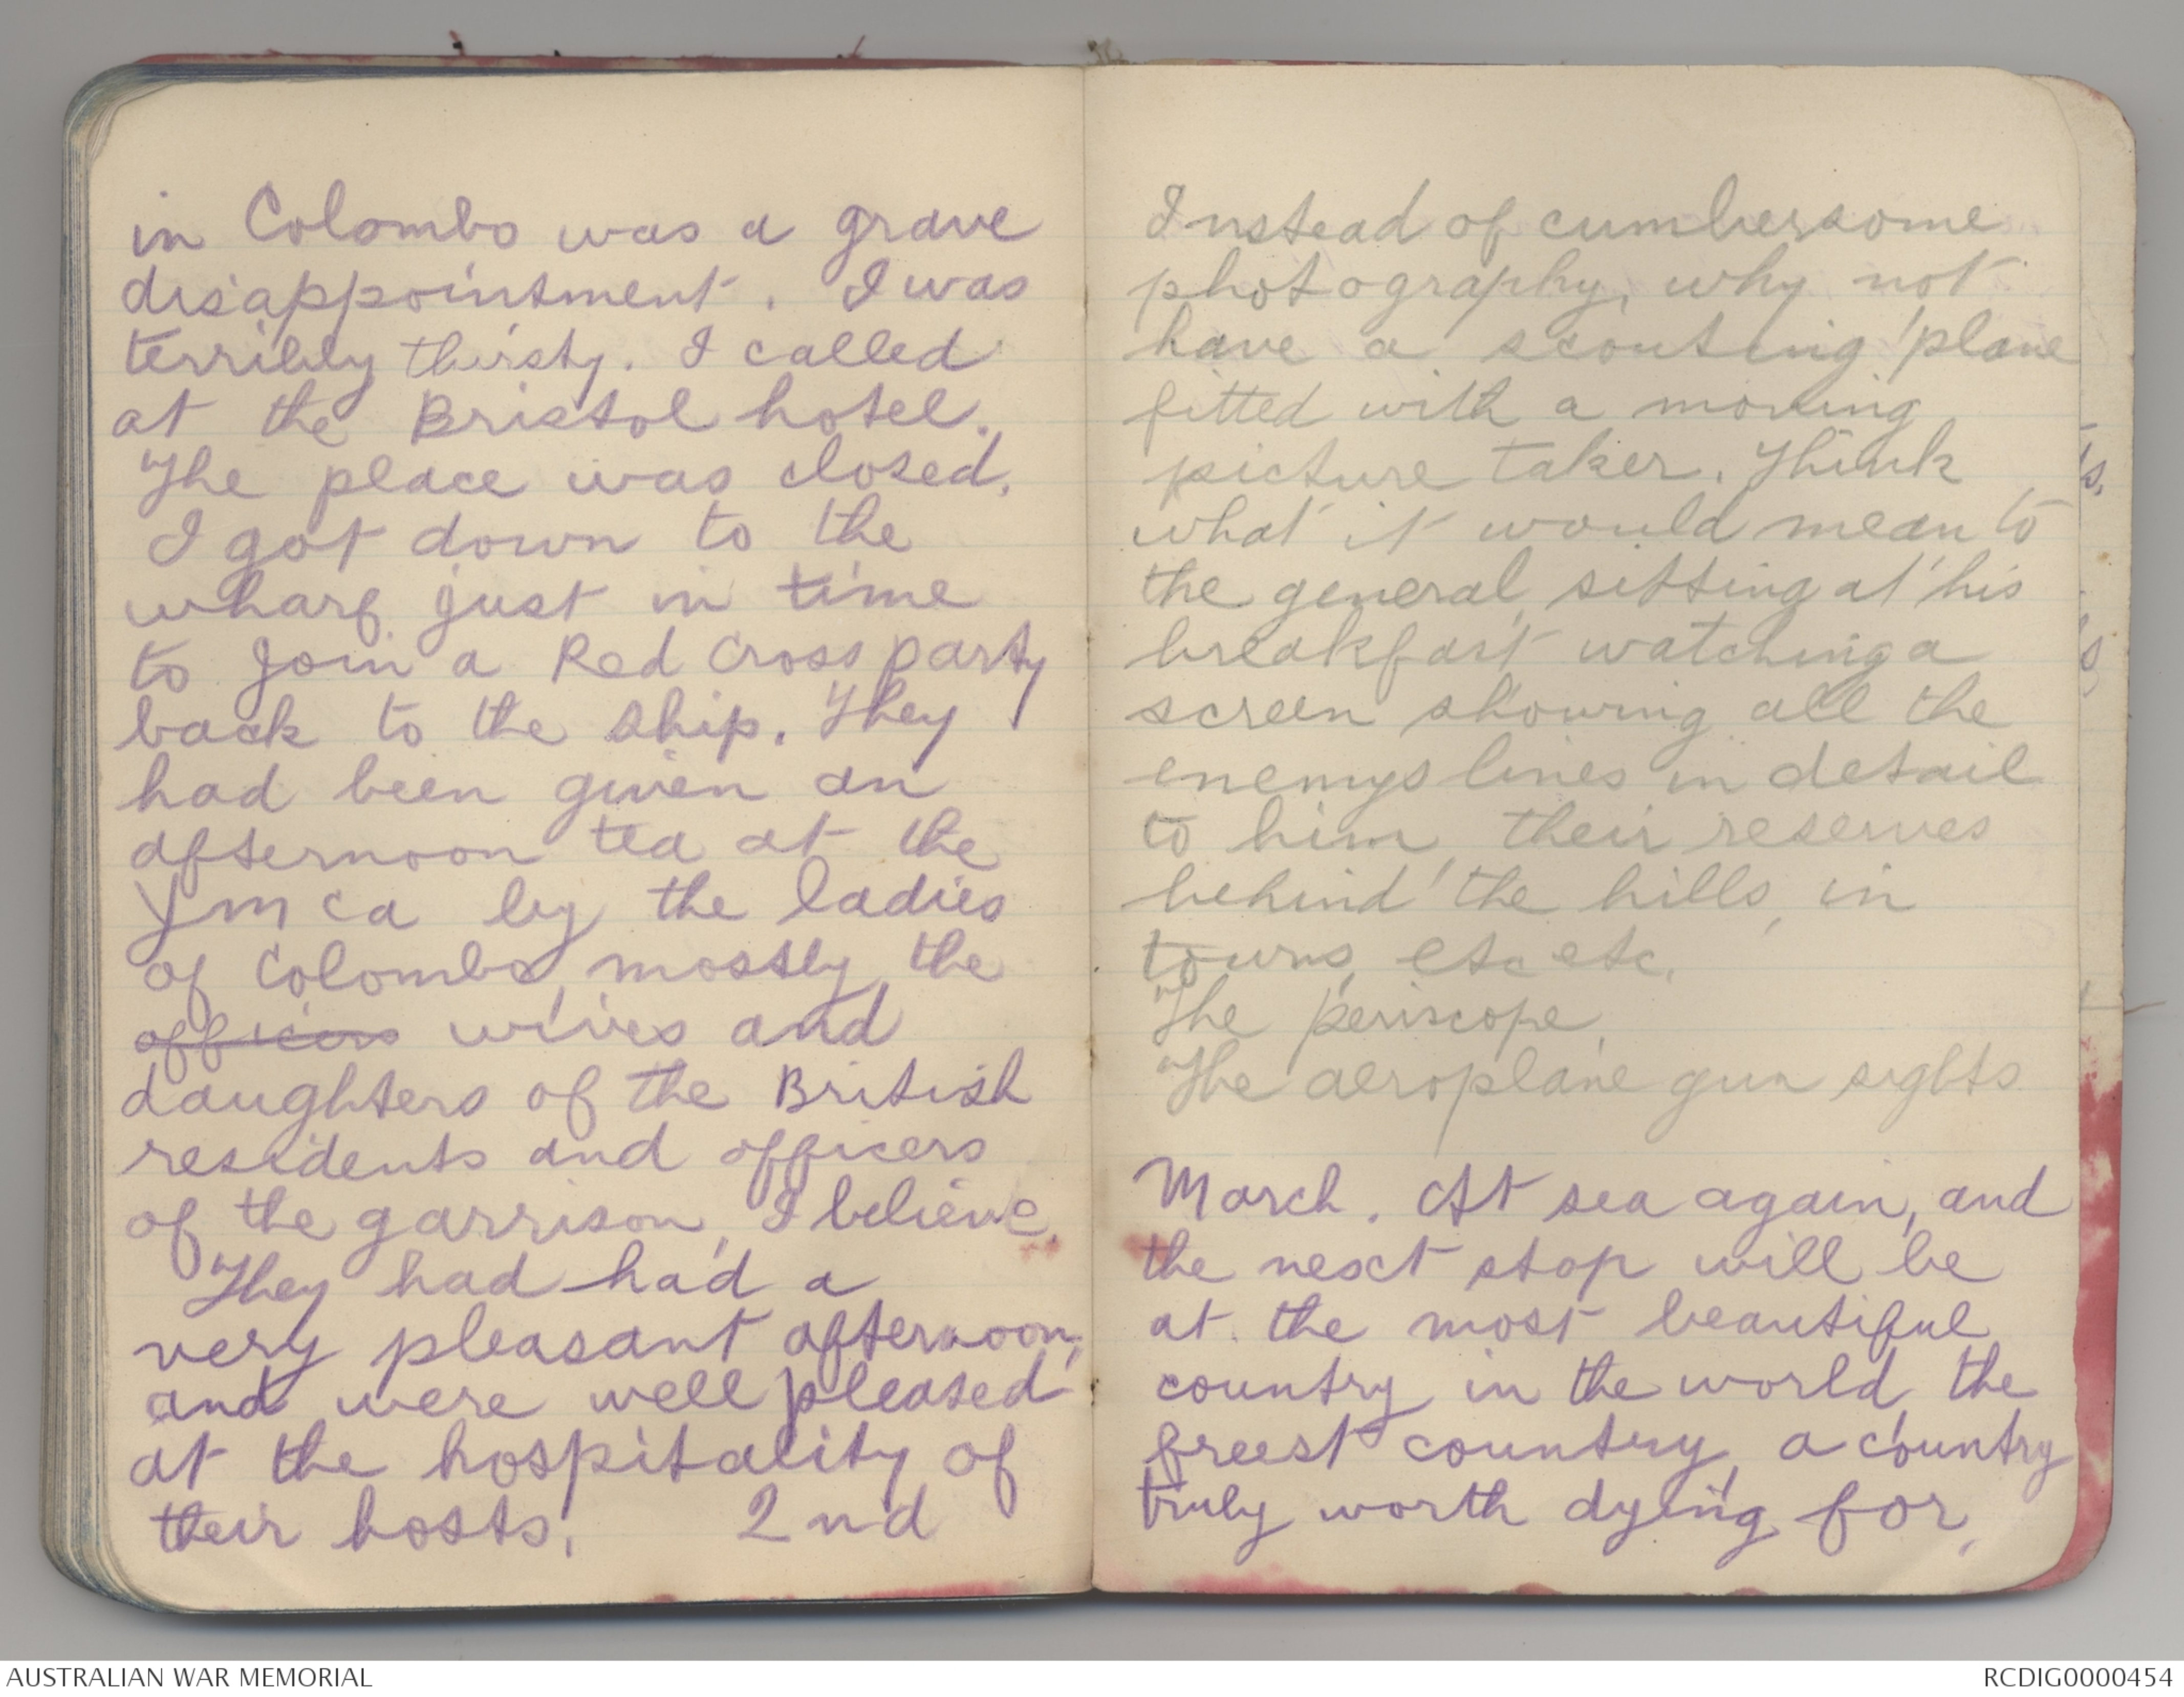 in Colombo was a grave
disappointment. I was
terribly thirsty. I called
at the Bristol hotel.
The place was closed.
I got down to the
wharf just in time
to join a Red Cross party
back to the ship. They
had been given an
afternoon tea at the
Y m c a by the ladies
of Colombo, mostly, the
officers wives and
daughters of the British
residents and officers
of the garrison, I believe.
They had had a
very pleasant afternoon,
and were well pleased
at the hospitality of
their hosts. 2nd
Instead of cumbersome
photography, why not
have a scouting 'plane
fitted with a moving
picture taker. Think
what it would mean to
the general sitting at his
breakfast watching a
screen showing all the
enemys lines in detail
to him, their reserves
behind the hills, in
towns, etc etc.
The periscope.
The aeroplane gun sights
March. At sea again, and
the next stop will be
at the most beautiful
country in the world, the
freest country, a country
truly worth dying for.
AUSTRALIAN WAR MEMORIAL
RCDIG0000454